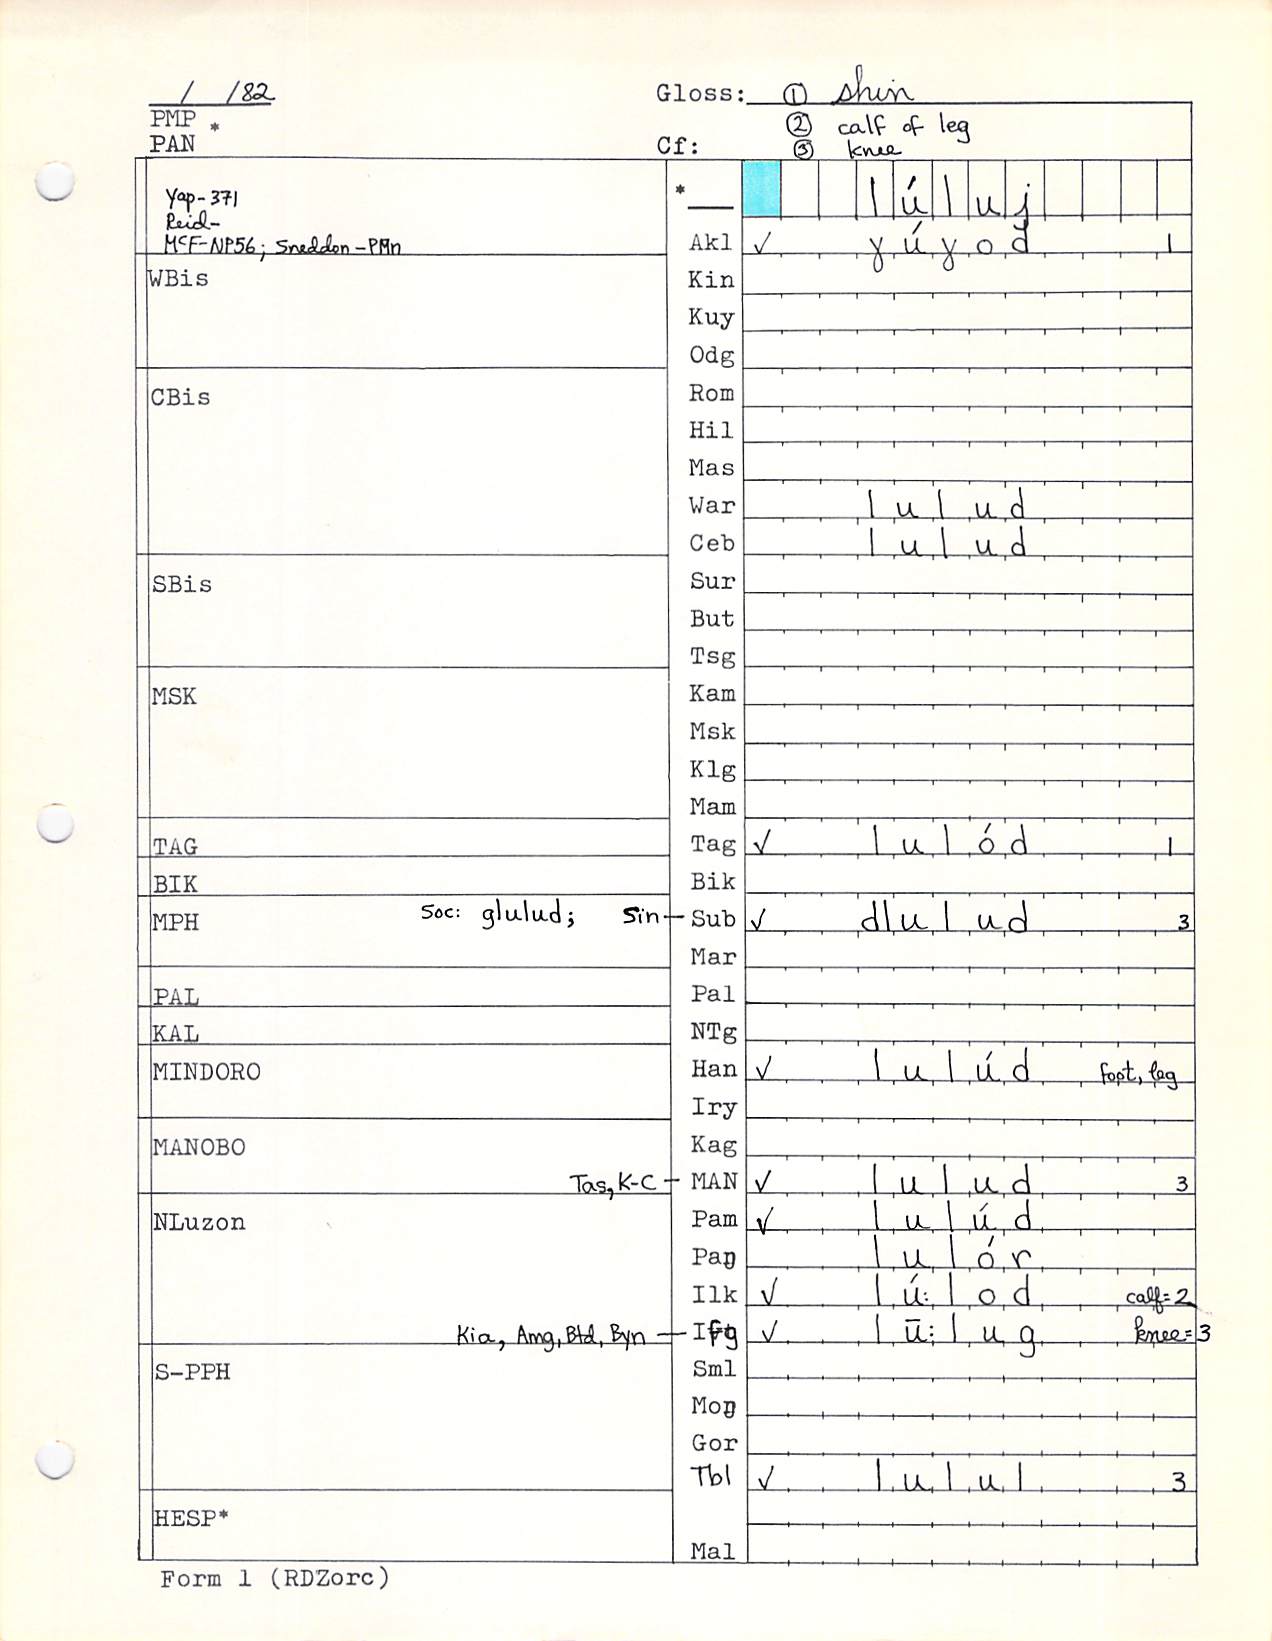 / /82
Gloss: ① shin
PMP *
② calf of leg
PAN
Cf: ③ knee
Yap-371
* lúluj
Reid-
McF-NP56; Sneddon-PMn
Akl ✓ ɣúɣod 1
WBis
Kin
Kuy
Odg
CBis
Rom
Hil
Mas
War lulud
Ceb lulud
SBis
Sur
But
Tsg
MSK
Kam
Msk
Klg
Mam
TAG
Tag ✓ lulód 1
BIK
Bik
MPH Soc: glulud; Sin — Sub ✓ dlulud 3
Mar
PAL
Pal
KAL
NTg
MINDORO
Han ✓ lulúd foot, leg
Iry
MANOBO
Kag
Tas, K-C — MAN ✓ lulud 3
NLuzon
Pam ✓ lulúd
Paŋ lulór
Ilk ✓ lú:lod calf=2
Kia, Amg, Btd, Byn — Ifg ✓ lū:lug knee=3
S-PPH
Sml
Moŋ
Gor
Tbl ✓ lulul 3
HESP*
Mal
Form 1 (RDZorc)